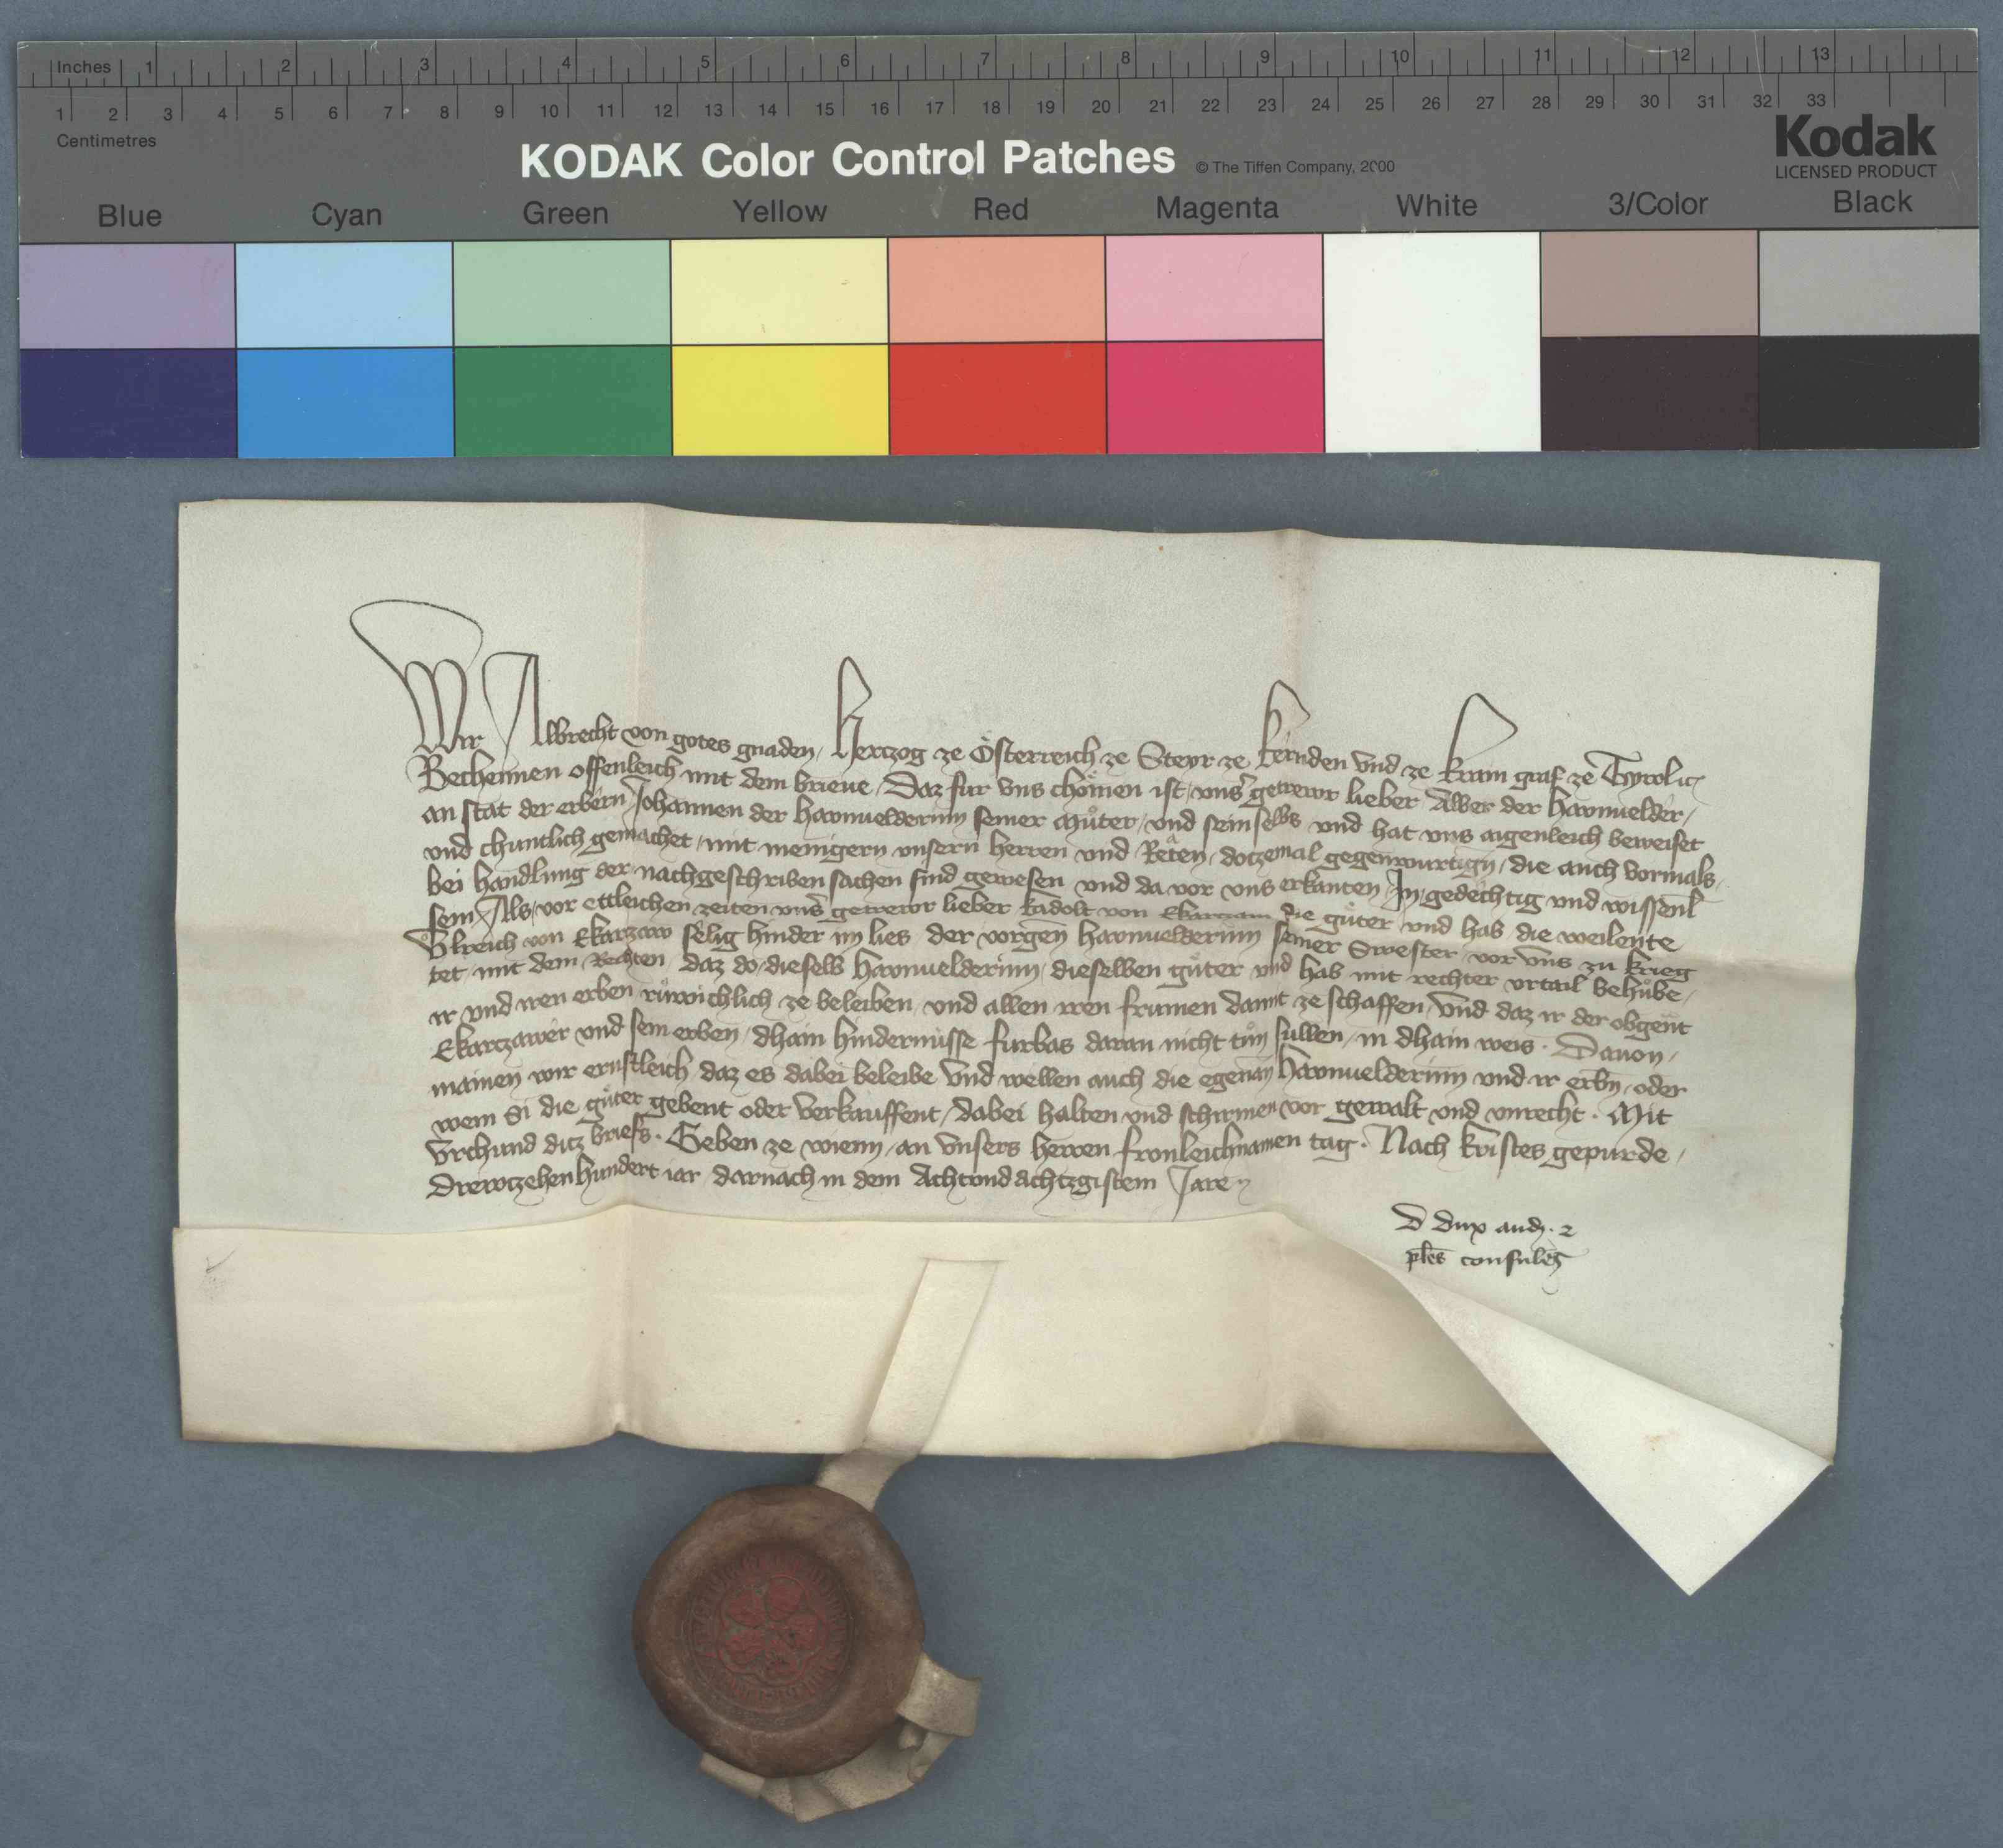 Inches 1 2 3 4 5 6 7 8 9 10 11 12 13
1 2 3 4 5 6 7 8 9 10 11 12 13 14 15 16 17 18 19 20 21 22 23 24 25 26 27 28 29 30 31 32 33
Centimetres
KODAK Color Control Patches © The Tiffen Company, 2000
Kodak
LICENSED PRODUCT
Blue Cyan Green Yellow Red Magenta White 3/Color Black
Wir Albrecht von gotes gnaden, Herczog ze Österreich ze Steyr ze kernden vnd ze krain graf ze Tyrol etc
Bechennen offenleich mit dem brieue, Daz fur vns chömen ist, vnser getrewr lieber Alber der Hawnuelder,
an stat der erbern Johannen der Hawnuelderinn seiner Můter, vnd sein selbs vnd hat vns aigenleich beweiset
vnd chuntlich gemachet, mit menigern vnsern herren vnd Reten, dotzemal gegenwurtign, die auch vormals,
bei handlung der nachgeschriben sachen sind gewesen vnd da vor vns erkanten, In gedechtig vnd wissenl
sein, Als, vor ettleichen zeiten vnser getrewr lieber kadolt von Ekarczaw die gůter vnd hab die weilente
Vlreich von Ekarczaw selig hinder im lies der vorgen Hawnuelderinn seiner Swester, vor vns zu krieg
tet, mit dem Rechten, daz do, dieselb Hawnuelderinn, dieselben gůter vnd hab mit rechter vrtail behůbe,
ir vnd iren erben růwichlich ze beleiben, vnd allen iren frumen damit ze schaffen, vnd daz ir der obgent
Ekarczawer vnd sein erben, dhain hindernüsse furbas daran nicht tůn sullen, in dhain weis. Dauon,
mainen wir ernstleich, daz es dabei beleibe vnd wellen auch die egenan Hawnuelderinn vnd ir erbn, oder
wem Si die gůter gebent oder verkauffent, dabei halten vnd schirmen vor gewalt vnd vnrecht. Mit
vrchund ditz briefs. Geben ze wienn, an vnsers herren fronleichnamen tag. Nach kristes gepurde,
drewtzehenhundert iar, darnach in dem Achtvndachtzgistem Jare
D dux aud. 2
ples consules